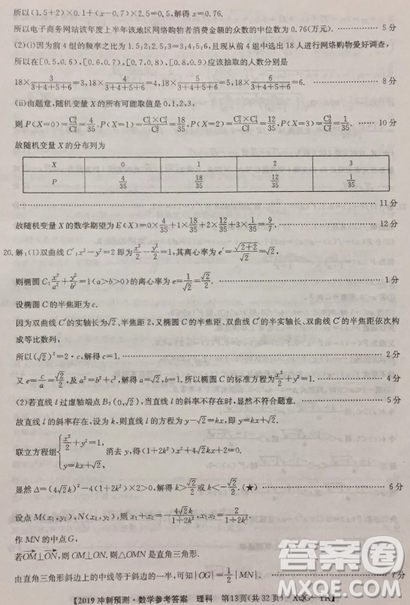 所以(1.5+2)×0.1+(x-0.7)×2.5=0.5,解得 x=0.76,
所以电子商务网站该年度上半年该地区网络购物者消费金额的众数的中位数为 0.76(万元). 5分
(2)(i)因为前4组的频率之比为 1.5:2:2.5:3=3:4:5:6,且现从前4组中选出18人进行网络购物爱好调查,
所以在[0.5,0.6),[0.6,0.7),[0.7,0.8),[0.8,0.9)应该抽取的人数分别是
18×3/(3+4+5+6)=3,18×4/(3+4+5+6)=4,18×5/(3+4+5+6)=5,18×6/(3+4+5+6)=6. 8分
(ii)由题意,随机变量 X 的所有可能取值是 0,1,2,3,
10分
故随机变量 X 的分布列为
X 0 1 2 3
P 4/35 18/35 12/35 1/35
11分
故随机变量 X 的数学期望为 E(X)=0×4/35+1×18/35+2×12/35+3×1/35=9/7. 12分
20.解:(1)双曲线 C′,x²-y²=2 即为 x²/2-y²/2=1,其离心率为 e′=√(2+2)/√2=√2,
则椭圆 C:x²/a²+y²/b²=1(a>b>0)的离心率为 e=1/√2=√2/2. 1分
设椭圆 C 的半焦距为 c.
因为双曲线 C′的实轴长为√2,半焦距为 2,又椭圆 C 的半焦距、双曲线 C′的半实轴长、双曲线 C′的半焦距依次构
成等比数列,
所以(√2)²=2·c,解得 c=1. 2分
又 e=c/a=√2/2,及 a²=b²+c²,解得 a=√2,b=1,所以椭圆 C 的标准方程为 x²/2+y²=1. 4分
(2)若直线 l 过虚轴端点 B₁(0,√2),当直线 l 的斜率不存在时,显然不符合题意. 5分
故直线 l 的斜率存在,设为 k,则直线 l 的方程为 y-√2=kx,即 y=kx+√2.
联立方程组{x²/2+y²=1, y=kx+√2, 消去 y,得(1+2k²)x²+4√2kx+2=0.
显然 Δ=(4√2k)²-4(1+2k²)×2>0,解得 k>√2/2 或 k<-√2/2.(★) 6分
设点 M(x₁,y₁),N(x₂,y₂),则 x₁+x₂=-4√2k/(1+2k²),x₁x₂=2/(1+2k²).
作 MN 的中点 G.
若OM⊥ON,则△OMN 是直角三角形.
由直角三角形斜边上的中线等于斜边的一半,可知|OG|=1/2|MN|. 7分
【2019 冲刺预测·数学参考答案 理科 第13页(共 32 页)